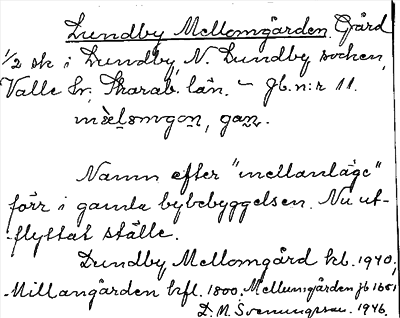 Lundby Mellomgården. Gård
1/2 sk i Lundby, N. Lundby socken,
Valle hr, Skarab. län. – Jb. n:r 11.
Namn efter "mellanläge"
förr i gamla bybebyggelsen. Nu ut-
-flyttat ställe.
Lundby Mellomgård kb. 1940,
Millangården hfl. 1800. Mellumgården jb 1651
D. M. Svenungsson. 1946.